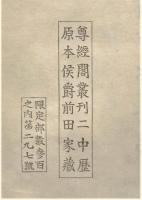 尊經閣叢刊二中歷
原本侯爵前田家藏
限定部數參百
之内第二九七號